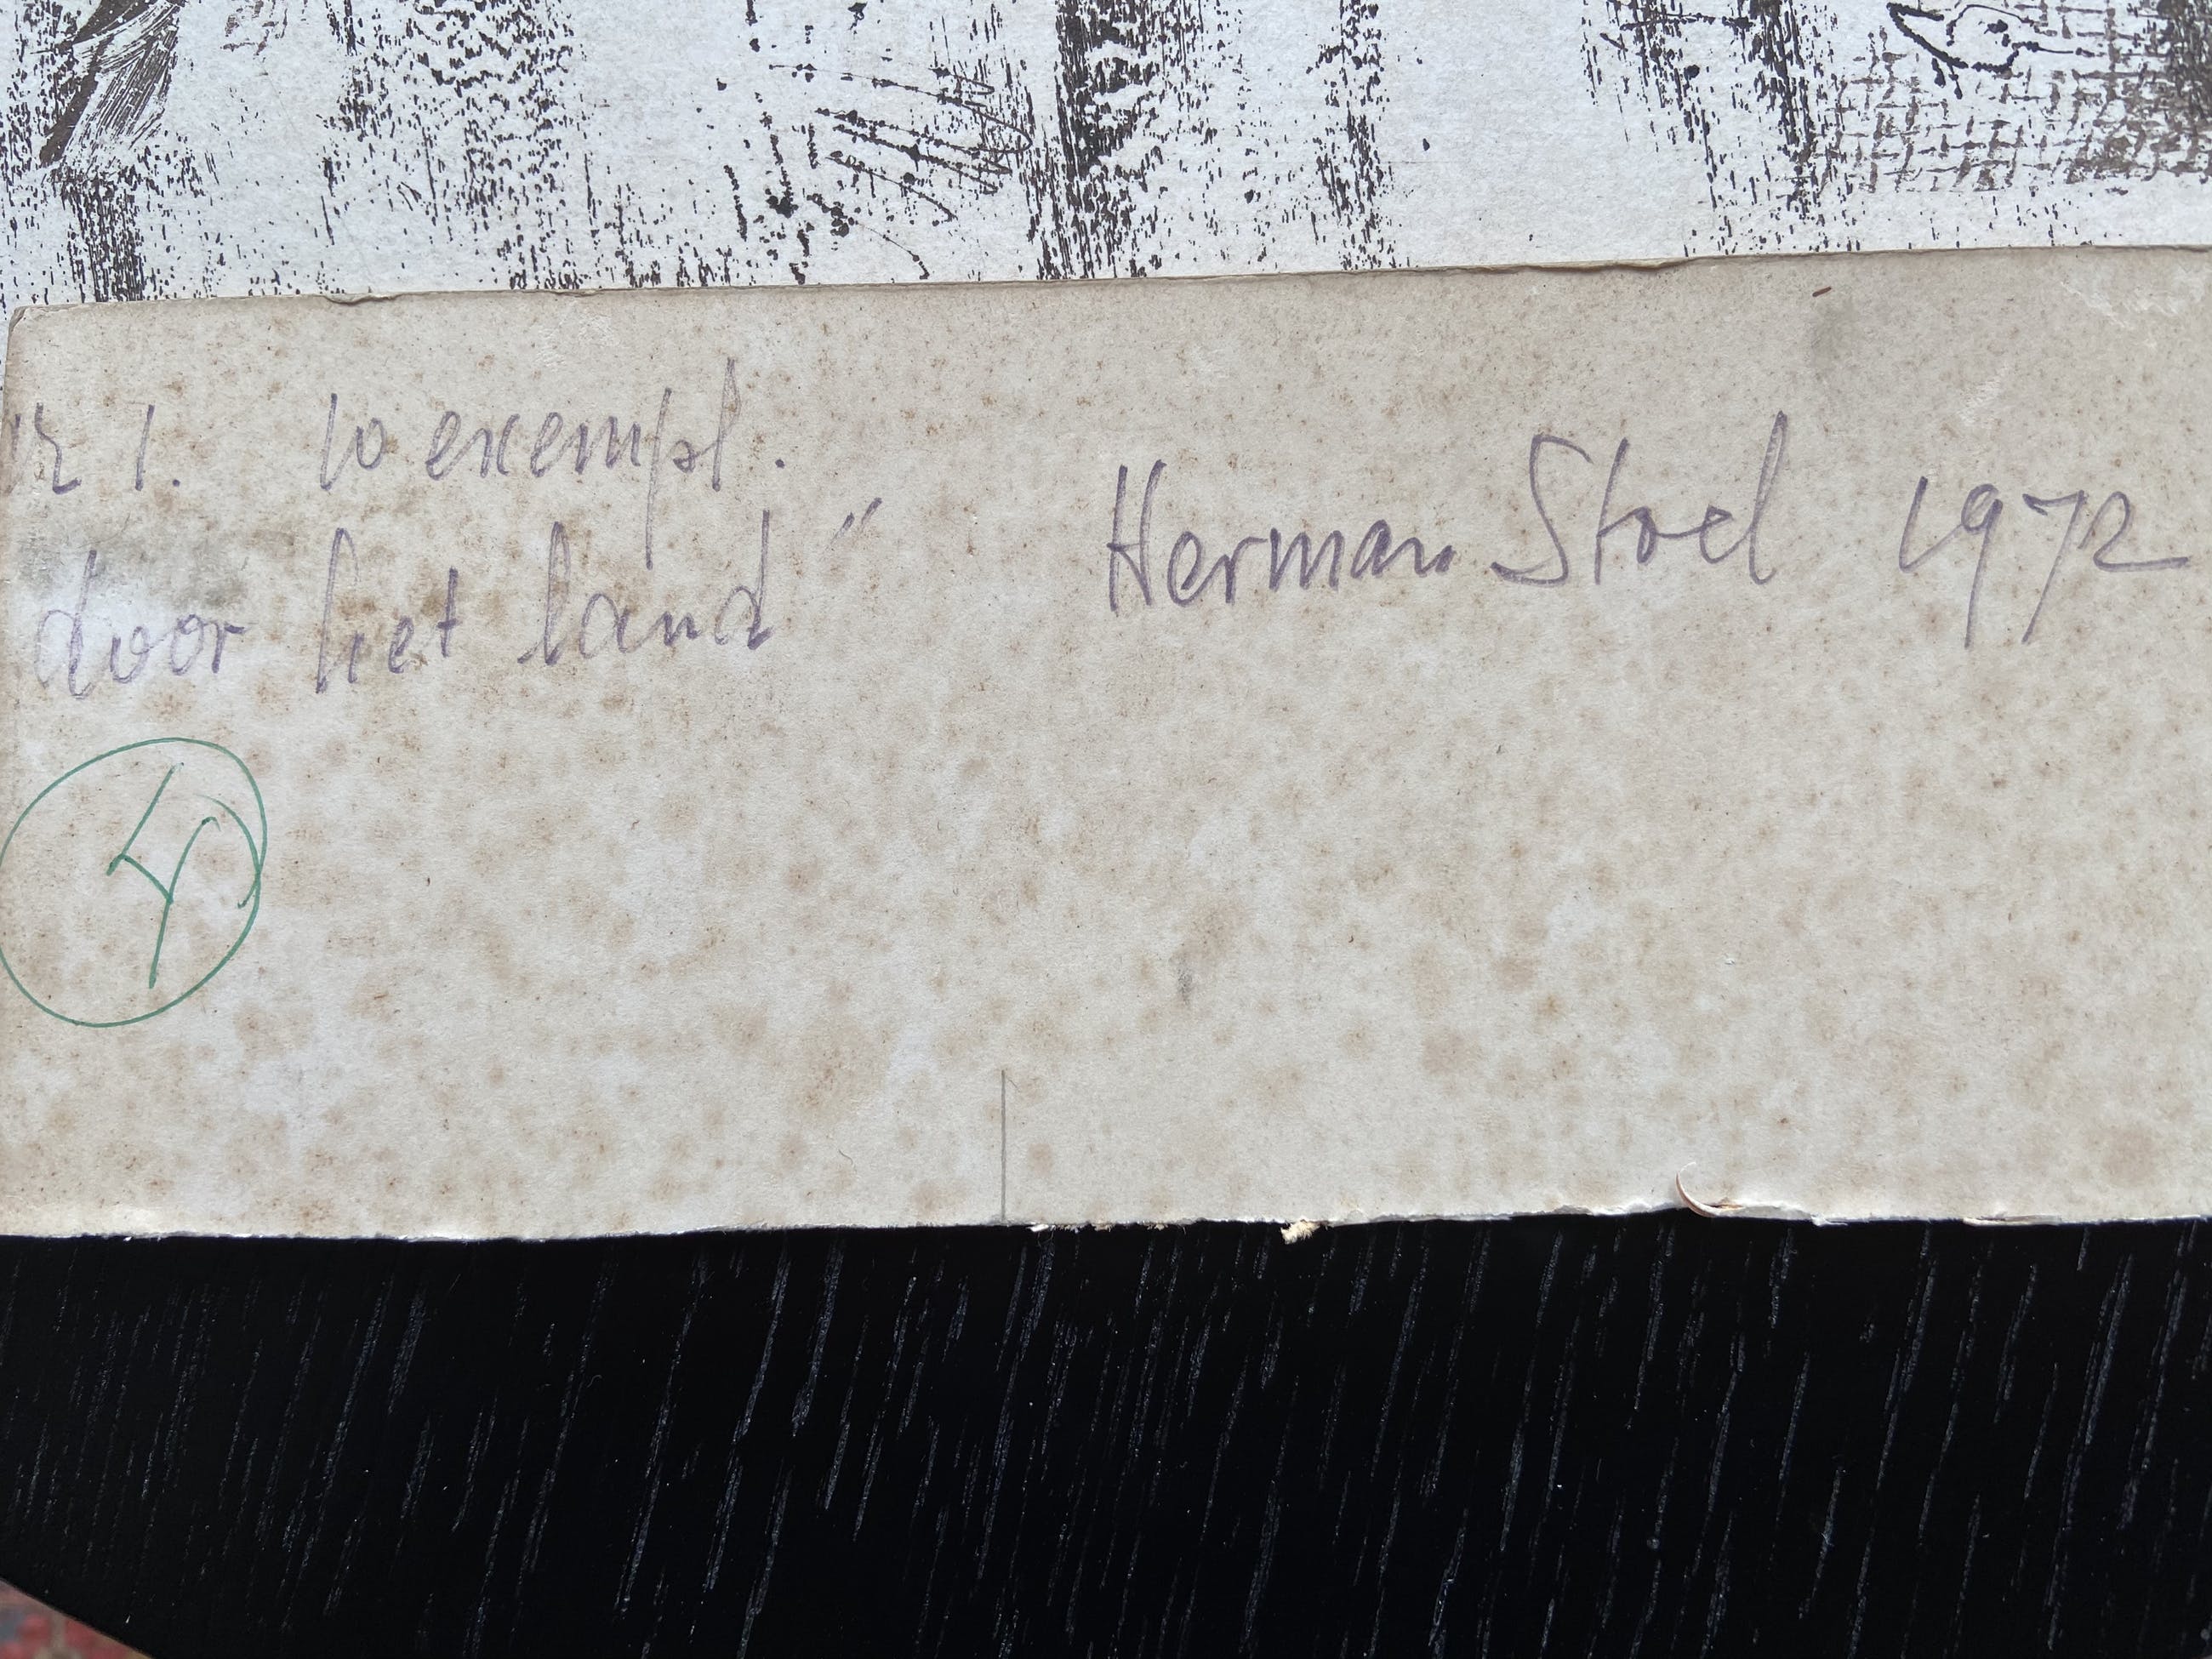 nr 1. 10 exempl.
door het land" Herman Stoel 1972
4